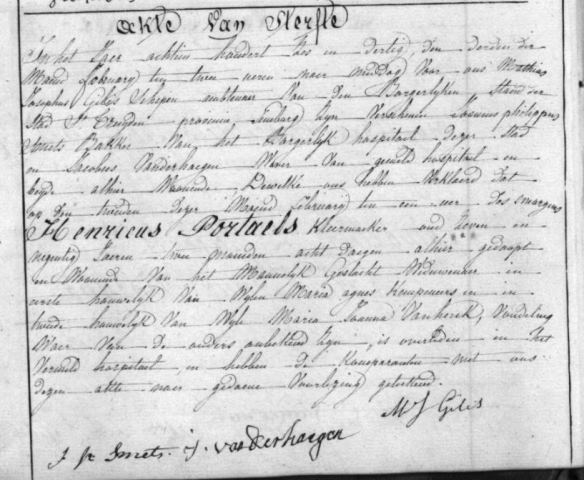 ackte Van Sterfte
In het Jaer achtien hondert ses en dertig, den derden der
Maend february ten twee ueren naer middag Voor ons Mathias
Josephus Gilis Schepen ambtenaer Van den Borgerlyken Stand der
Stad St Truyden provincie Limburg Zyn Verschenen Joannes philippus
Smets Bakker Van het Borgerlyk hospitael dezer Stad
en Jacobus Vanderhaegen Van gemeld hospitael en
beyde alhier Woonende, Dewelke ons hebben Verklaerd dat
op den tweeden dezer Maend february ten een uer Des smorgens
Henricus Portaels Kleermaeker oud Zeven en
negentig Jaeren twee maenden acht Daegen alhier gedoopt
en Woonende Van het Mannelyk Geslacht Weduwenaer in
eerste houwelyk Van Wylen Maria agnes Kempeneers en in
tweede houwelyk Van Wyle Maria Joanna Vanherck, Vondeling
Waer Van de ouders onbekend Zyn, is overleden in het
Vermeld hospitael, en hebben de Komparanten met ons
dezen akte naer gedaene Voorlezing geteekend.
M J Gilis
J p Smets. J. vanderhaegen